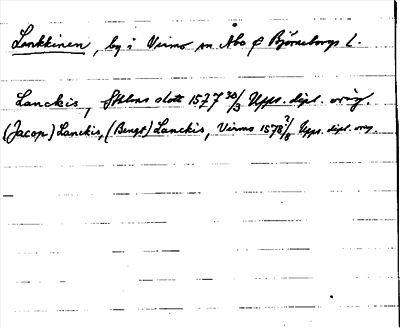 Lankkinen, by i Virmo sn Åbo o Björneborgs l.
Lanckis, Sthlms slott 1577 30/3 Upps. dipl. orig.
(Jacop) Lanckis, (Bengt) Lanckis, Virmo 1578 ?/8 Upps. dipl. orig.